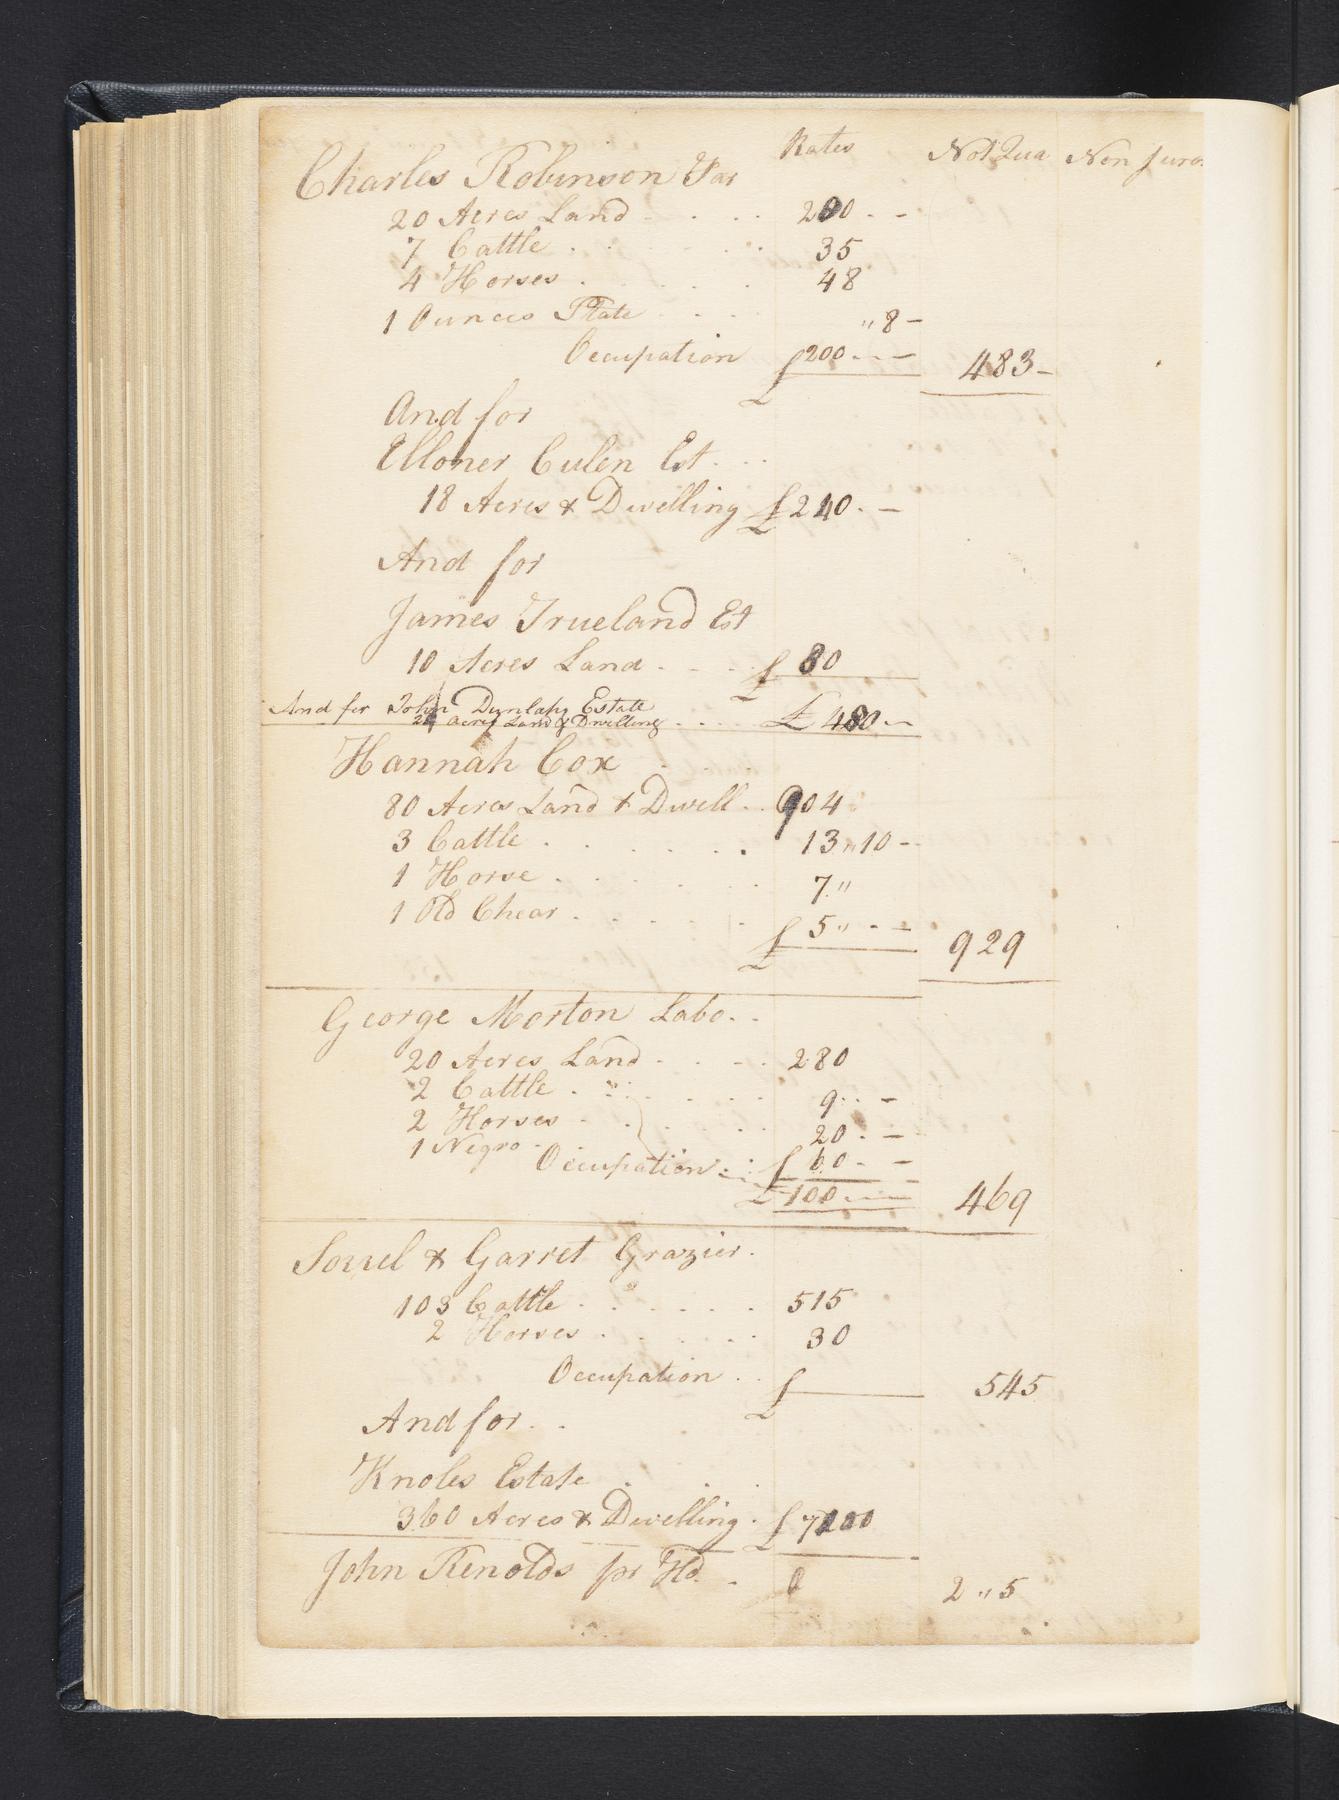 Rates Not Qua Non Juro
Charles Robinson Far
20 Acres Land 200
7 Cattle 35
4 Horses 48
1 Ounces Plate " 8 -
Occupation £200 483 -
And for
Elloner Culen Est
18 Acres & Dwelling £240. -
And for
James Trueland Est
10 Acres Land £ 80
And for John Dunlap Estate
24 Acres Land & Dwelling £ 480 -
Hannah Cox
80 Acres Land & Dwell. 904
3 Cattle 13 " 10 -
1 Horse 7. "
1 Old Chear £ 5 " - 929
George Morton Labo..
20 Acres Land 280
2 Cattle 9. -
2 Horses 20. -
1 Negro £ 60 -
Occupation £ 100 469
& Garret Grazier.
103 Cattle 515
2 Horses 30
Occupation £ 545
And for
Knoles Estate
360 Acres & Dwelling £ 7200
John Renolds pr Hd. 0 2 " 5